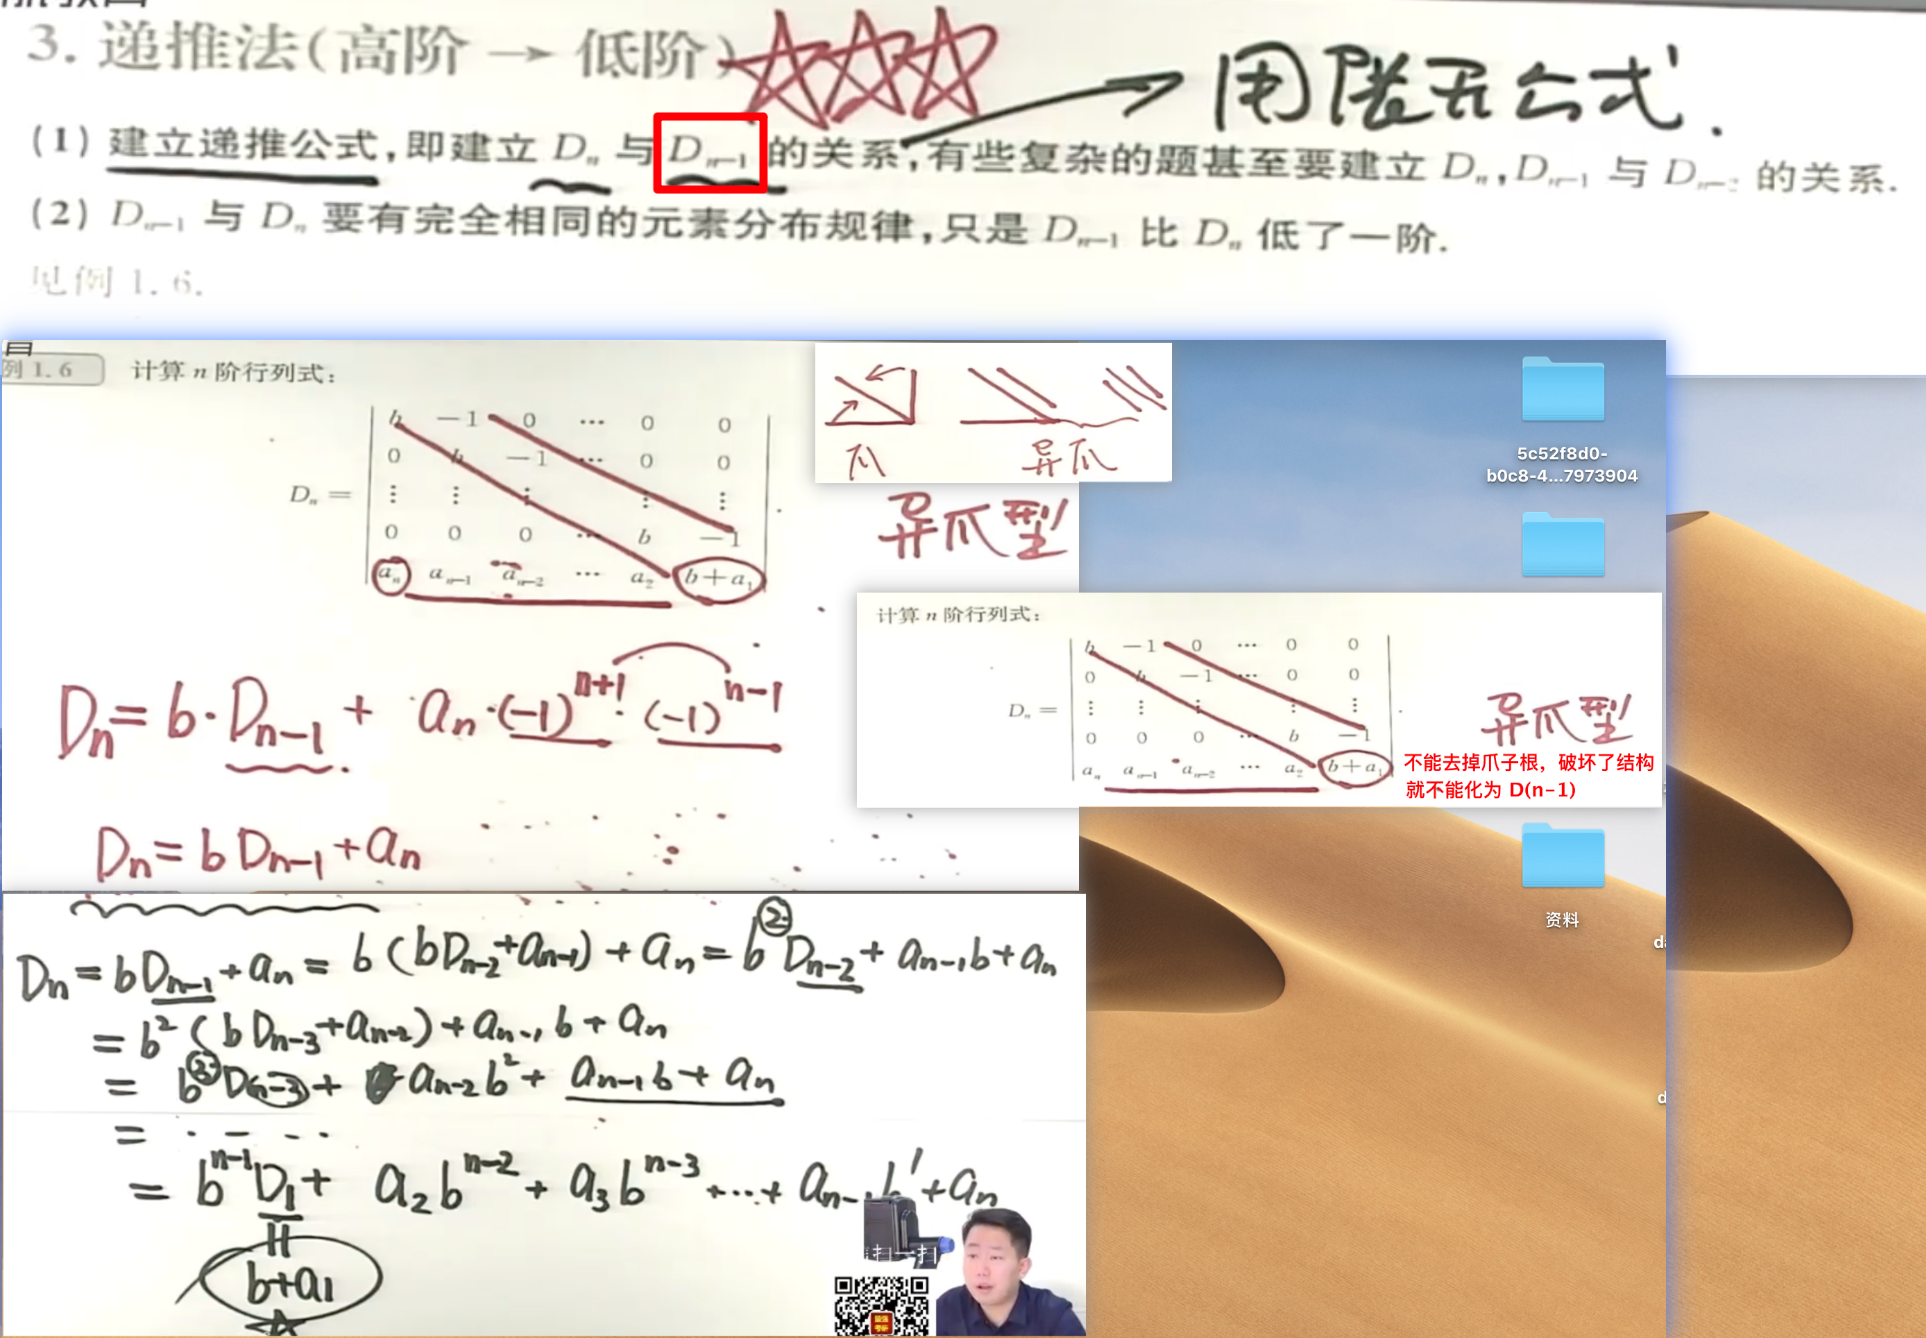 3. 递推法(高阶 → 低阶)
用展开公式.
(1) 建立递推公式,即建立 Dₙ 与 Dₙ₋₁ 的关系,有些复杂的题甚至要建立 Dₙ,Dₙ₋₁ 与 Dₙ₋₂ 的关系.
(2) Dₙ₋₁ 与 Dₙ 要有完全相同的元素分布规律,只是 Dₙ₋₁ 比 Dₙ 低了一阶.
见例 1.6.
例 1.6 计算 n 阶行列式:
b −1 0 ⋯ 0 0
0 b −1 ⋯ 0 0
Dₙ = ⋮ ⋮ ⋮ ⋮ ⋮ .
0 0 0 ⋯ b −1
aₙ aₙ₋₁ aₙ₋₂ ⋯ a₂ b+a₁
爪 异爪
异爪型
Dₙ = b·Dₙ₋₁ + aₙ·(−1)ⁿ⁺¹·(−1)ⁿ⁻¹
Dₙ = bDₙ₋₁ + aₙ
计算 n 阶行列式:
b −1 0 ⋯ 0 0
0 b −1 ⋯ 0 0
Dₙ = ⋮ ⋮ ⋮ ⋮ ⋮ .
0 0 0 ⋯ b −1
aₙ aₙ₋₁ aₙ₋₂ ⋯ a₂ b+a₁
异爪型
不能去掉爪子根，破坏了结构
就不能化为 D(n-1)
Dₙ = bDₙ₋₁ + aₙ = b(bDₙ₋₂+aₙ₋₁) + aₙ = b²Dₙ₋₂ + aₙ₋₁b + aₙ
= b²(bDₙ₋₃+aₙ₋₂) + aₙ₋₁b + aₙ
= b³Dₙ₋₃ + aₙ₋₂b² + aₙ₋₁b + aₙ
= ....
= bⁿ⁻¹D₁ + a₂bⁿ⁻² + a₃bⁿ⁻³ + ⋯ + aₙ₋₁b¹ + aₙ
b+a₁
扫一扫
5c52f8d0-
b0c8-4...7973904
资料